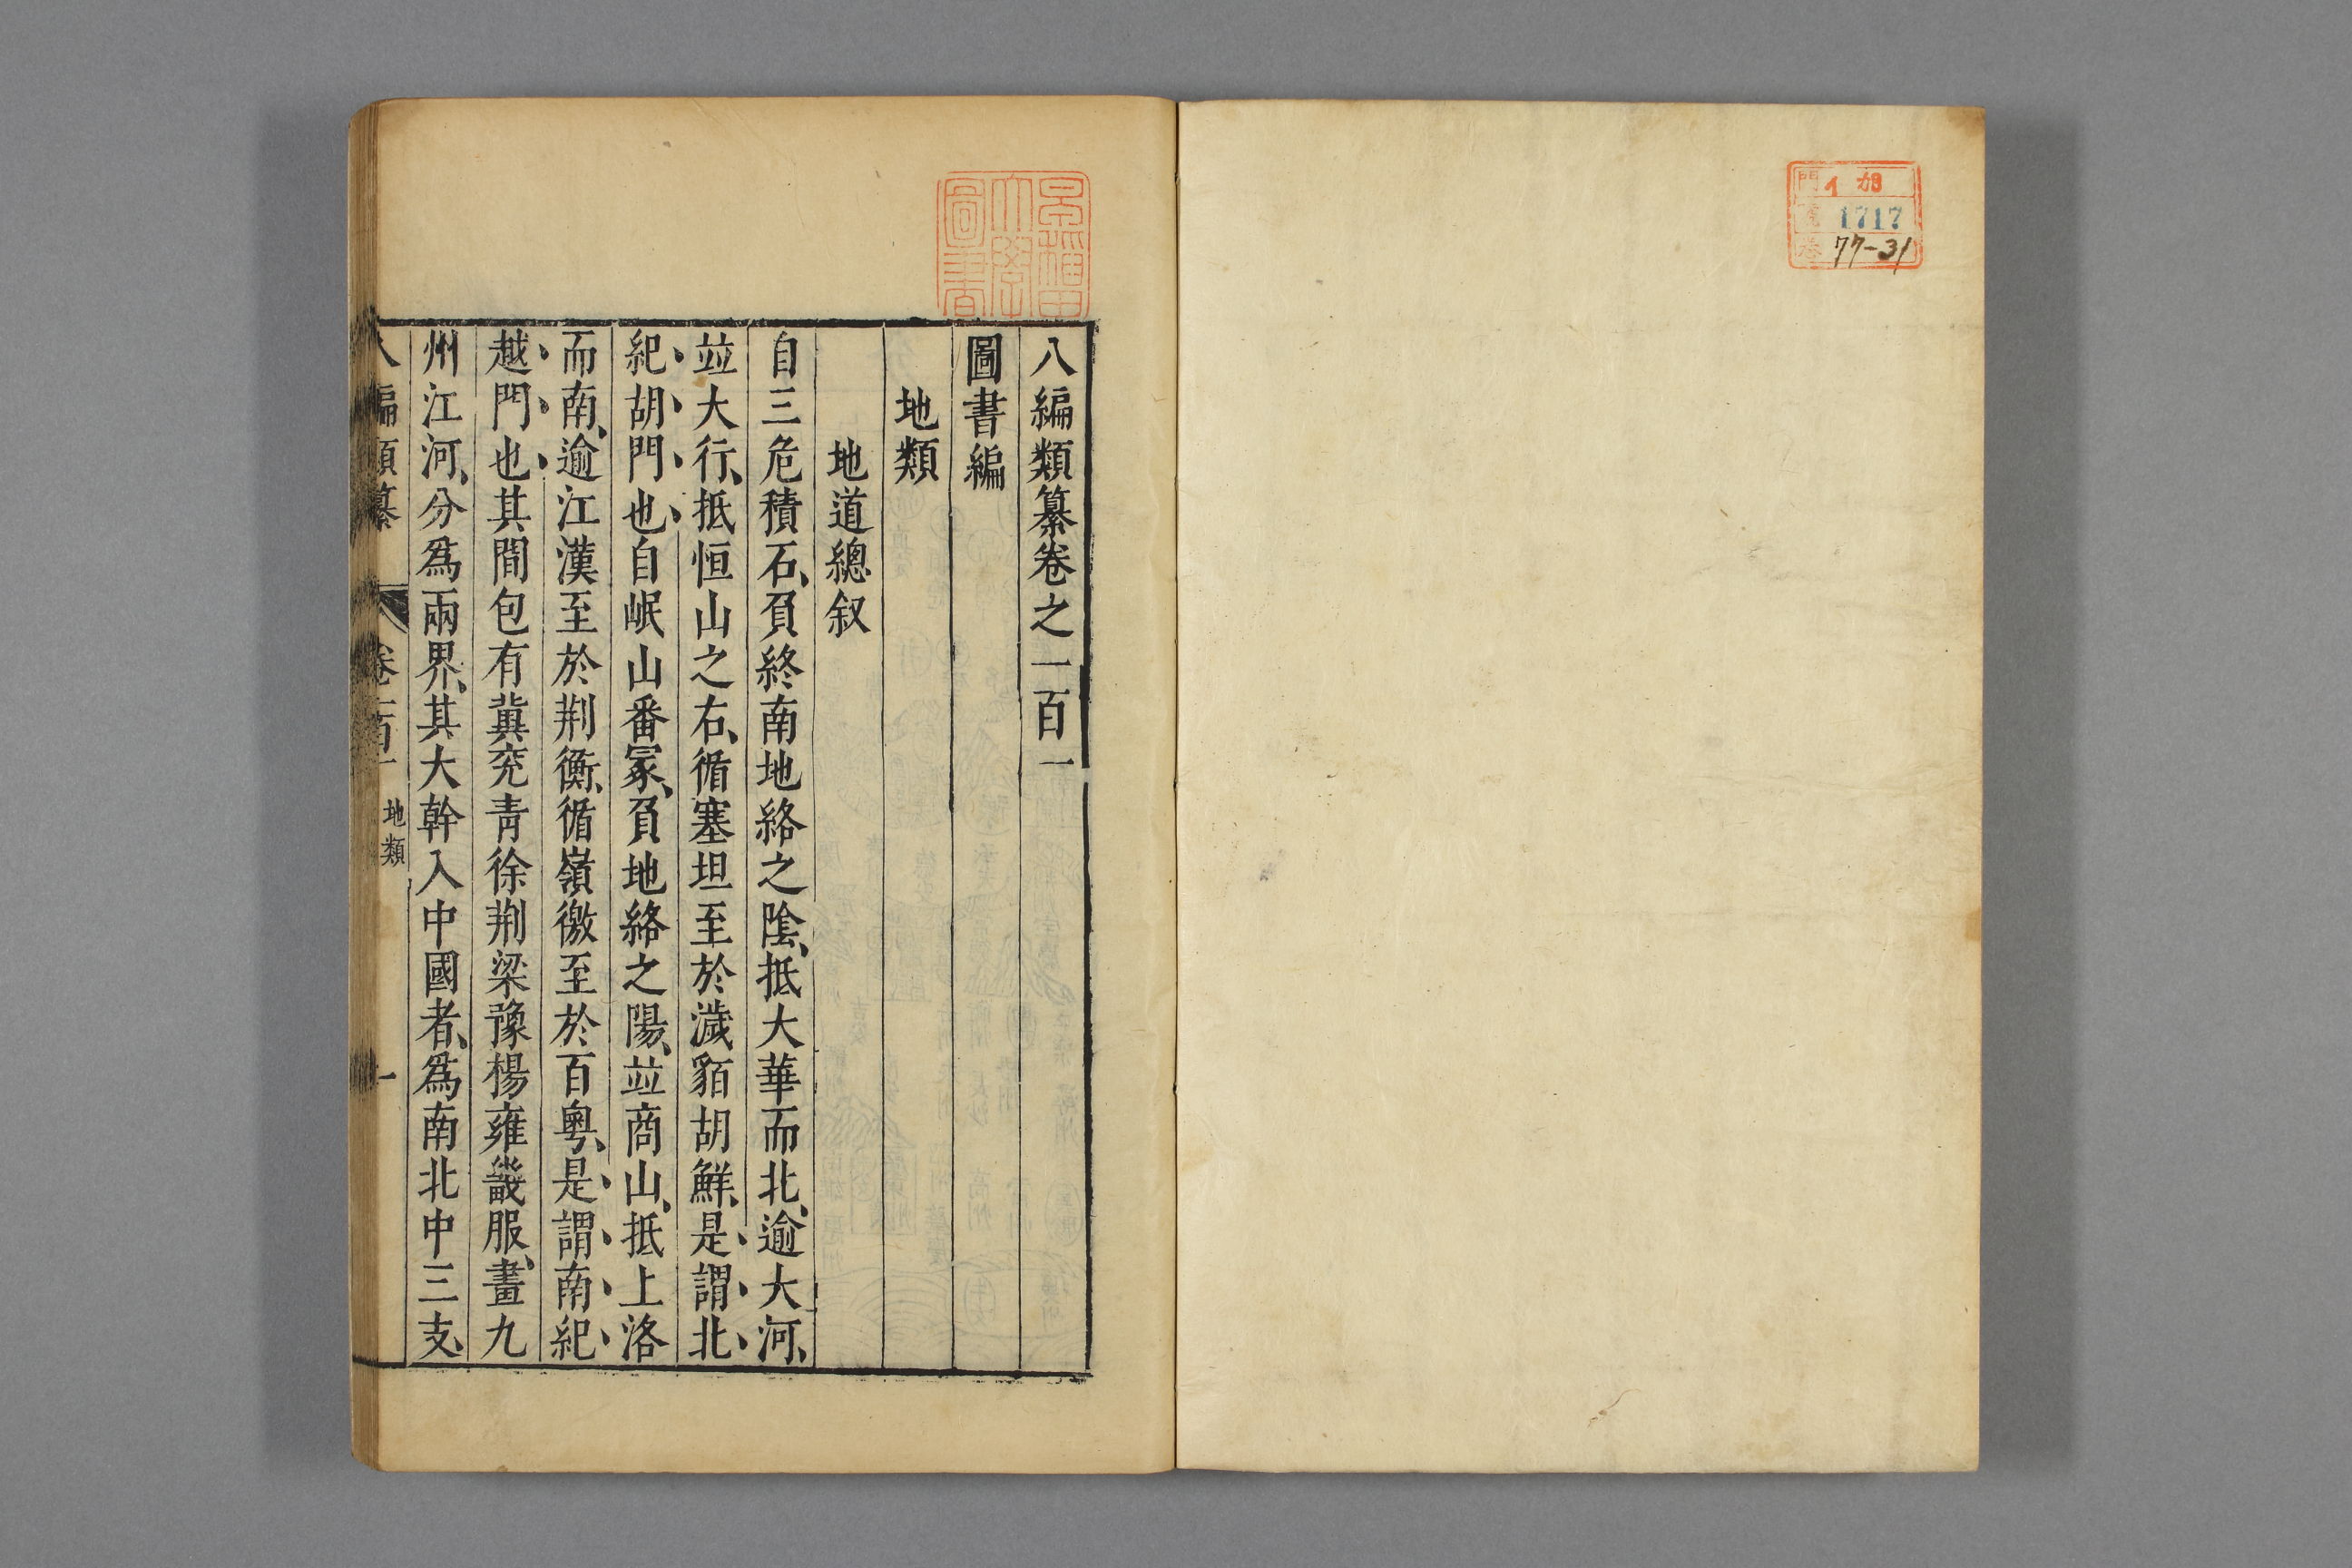 門 イ 13
號 1717
巻 77-31
早稲田大學圖書
八編類纂卷之一百一
圖書編
地類
地道總叙
自三危積石、負終南地絡之陰、抵大華而北、逾大河、
並大行、抵恒山之右、循塞坦至於濊貊胡鮮、是謂北
紀胡門也、自岷山番冢、負地絡之陽、並商山、抵上洛
而南、逾江漢至於荆衡、循嶺徼至於百粤、是謂南紀
越門也其間包有冀兖青徐荆梁豫楊雍畿服、畫九
州江河、分爲兩界、其大幹入中國者、爲南北中三支、
八編類纂 卷一百一 地類 一